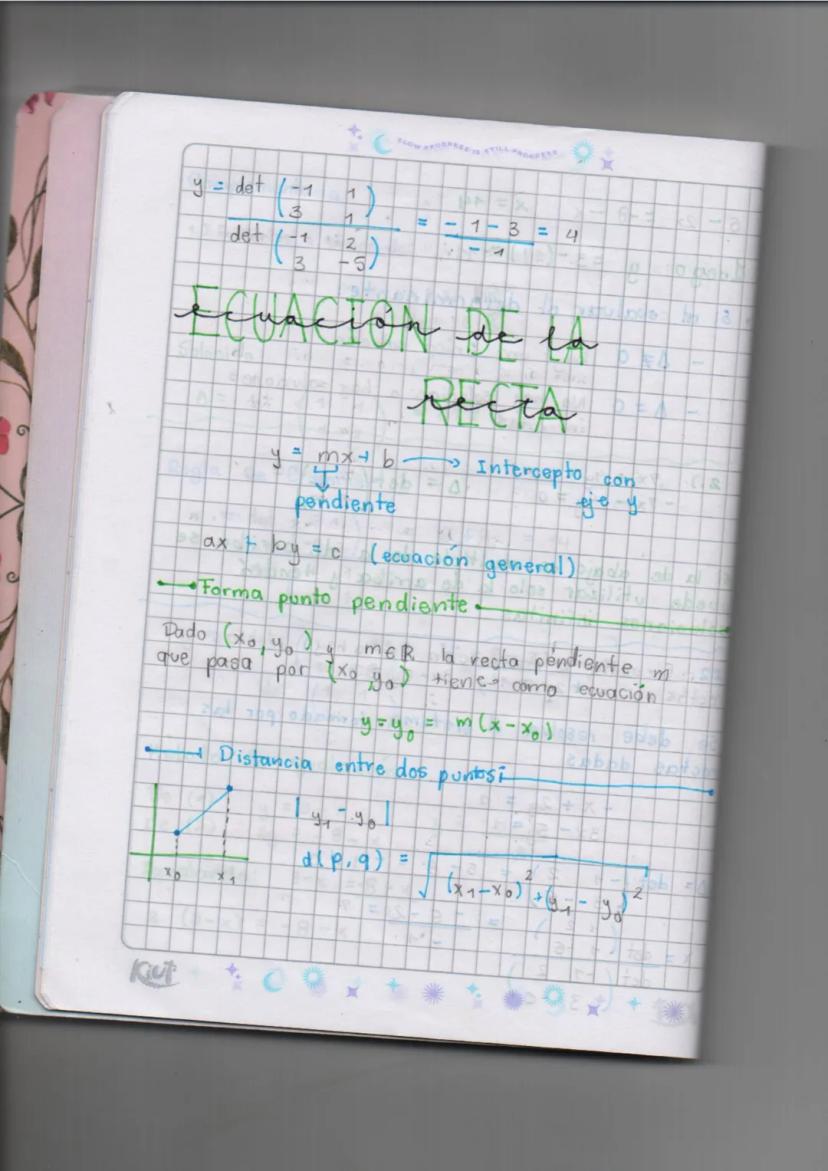 SLOW PROGRESS IS STILL PROGRESS
y = det (-1 1 / 3 1) / det (-1 2 / 3 -5) = -1-3 / -1 = 4
ECUACIÓN DE LA
ecuación de la
RECTA
recta
y = mx + b → Intercepto con
eje y
pendiente
ax + by = c (ecuación general)
Forma punto pendiente
Dado (x₀, y₀) y m∈R la recta pendiente m
que pasa por (x₀ y₀) tiene como ecuación
y = y₀ = m (x - x₀)
Distancia entre dos puntos
|y₁ - y₀|
d(p, q) = √(x₁-x₀)² + (y₁ - y₀)²
x₀ x₁
Kiut